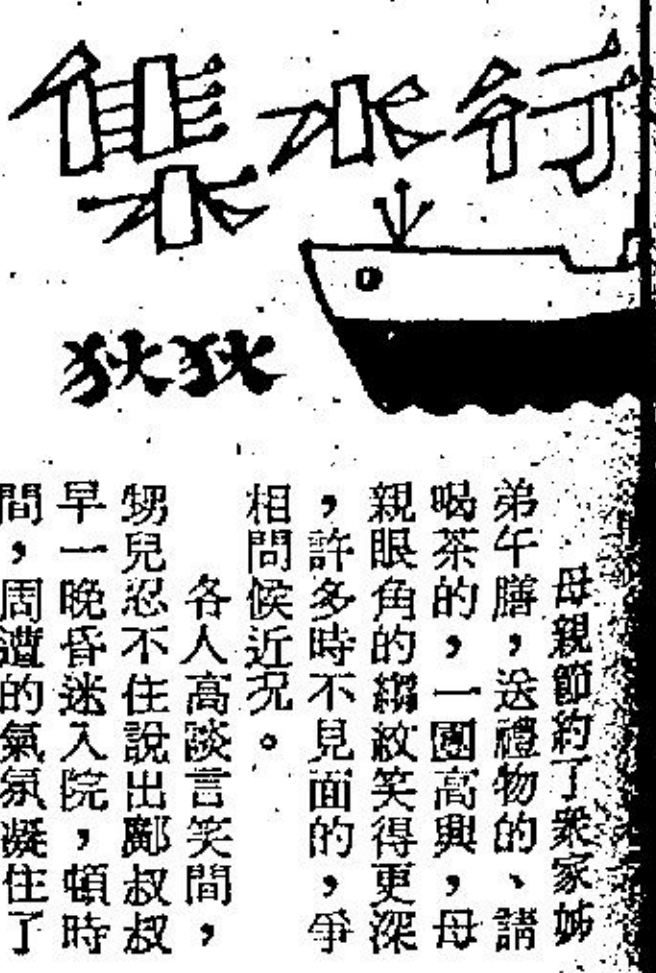 行水集
狄狄
母親節約了衆家姊
弟午膳，送禮物的、請
喝茶的，一團高興，母
親眼角的縐紋笑得更深
，許多時不見面的，爭
相問候近况。
各人高談言笑間，
甥兒忍不住說出鄺叔叔
早一晚昏迷入院，頓時
間，周遭的氣氛凝住了